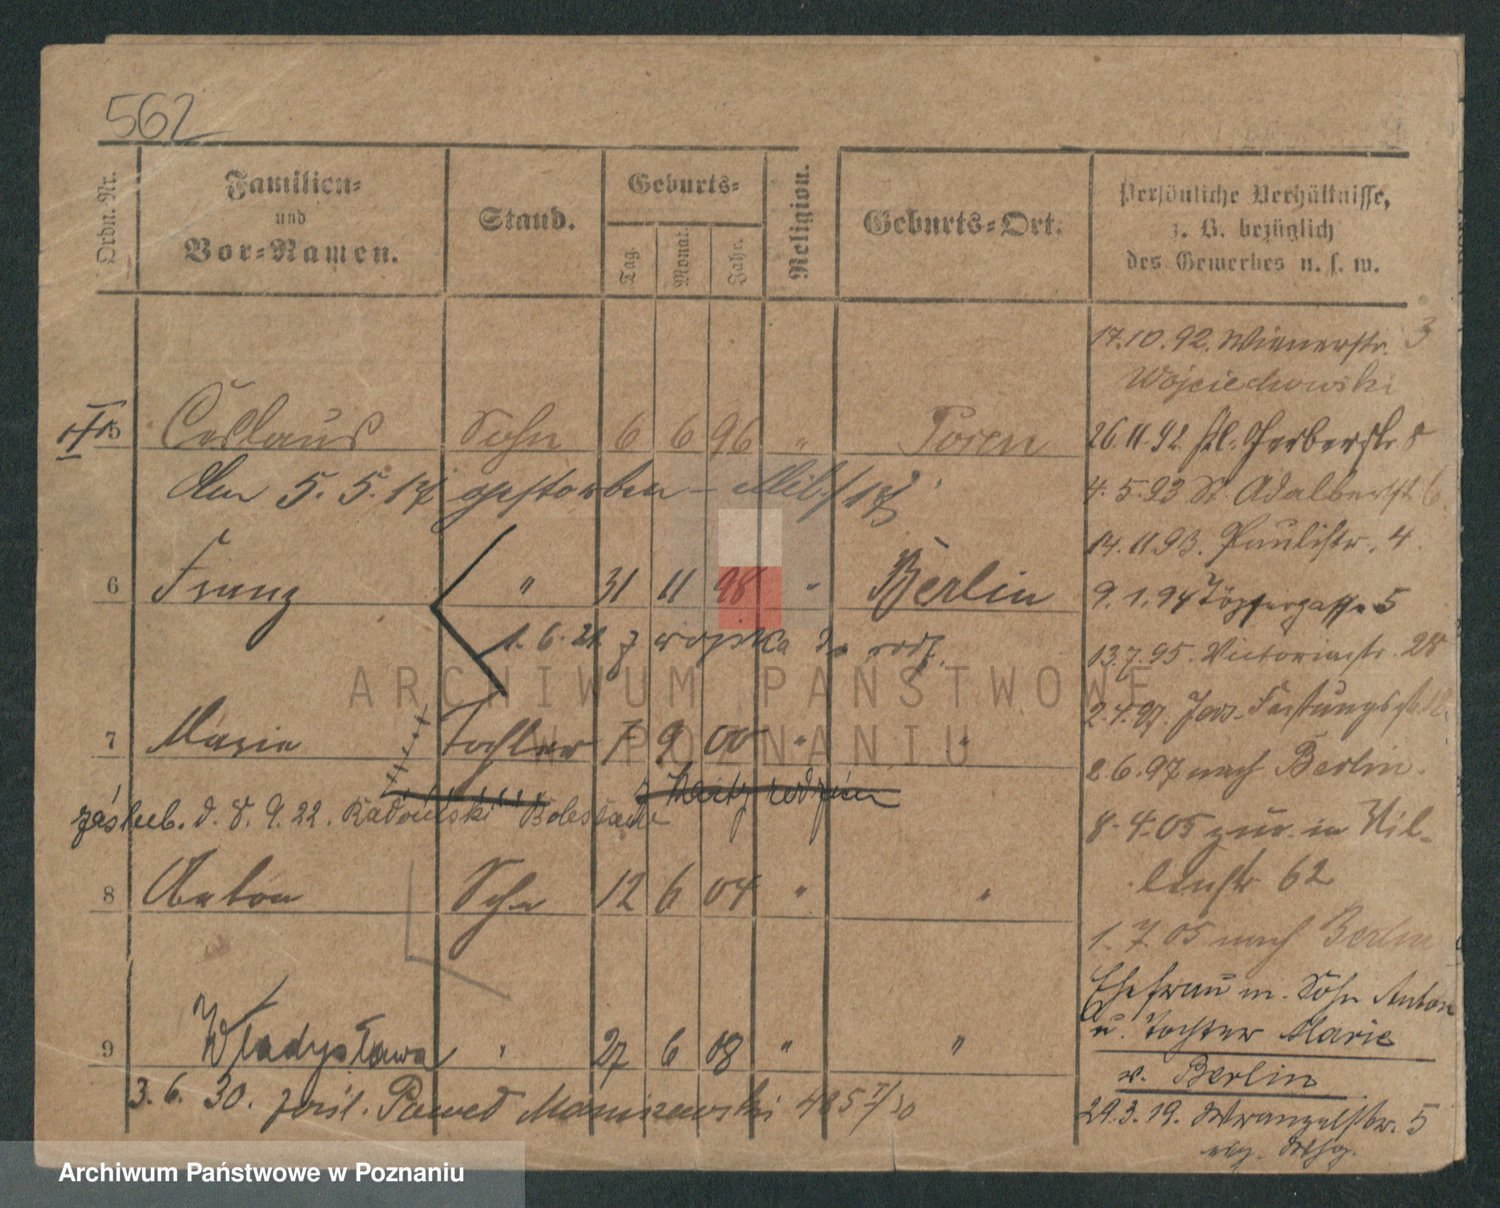 562
Ordn. Nr.
Familien-
und
Vor-Namen.
Stand.
Geburts-
Tag.
Monat.
Jahr.
Religion.
Geburts-Ort.
Persönliche Verhältnisse,
z. B. bezüglich
des Gewerbes u. s. w.
17.10.92. Wienerstr. 3
Wojciechowski
5 Ceslaus Sohn 6 6 96 " Posen
26.11.92. Gerberstr 8
den 5. 5. 17 gestorben
4.5.93 St. Adalbertst. 6
14.11.93. Paulistr. 4
6 Franz " 31 11 98 " Berlin
9.1.94 Töpfergasse 5
1. 6. 21 z wojska do rodz.
13.7.95. Victoriastr. 28
7 Marie Tochter 7 9 00 " "
2.6.97 nach Berlin.
z kartz rodzin
zaslub. d. 8. 9. 22. Radomski
8.4.05 zur. in Vil-
8 Anton Sohn 12 6 04 " "
62
1. 7. 05 nach Berlin
Ehefrau m. Sohn Anton
u. Tochter Marie
9 Władysława " 27 6 08 " "
v. Berlin
3. 6. 30. zasl. Paweł
29.3.19. Wrangelstr. 5
ARCHIWUM PAŃSTWOWE
W POZNANIU
Archiwum Państwowe w Poznaniu